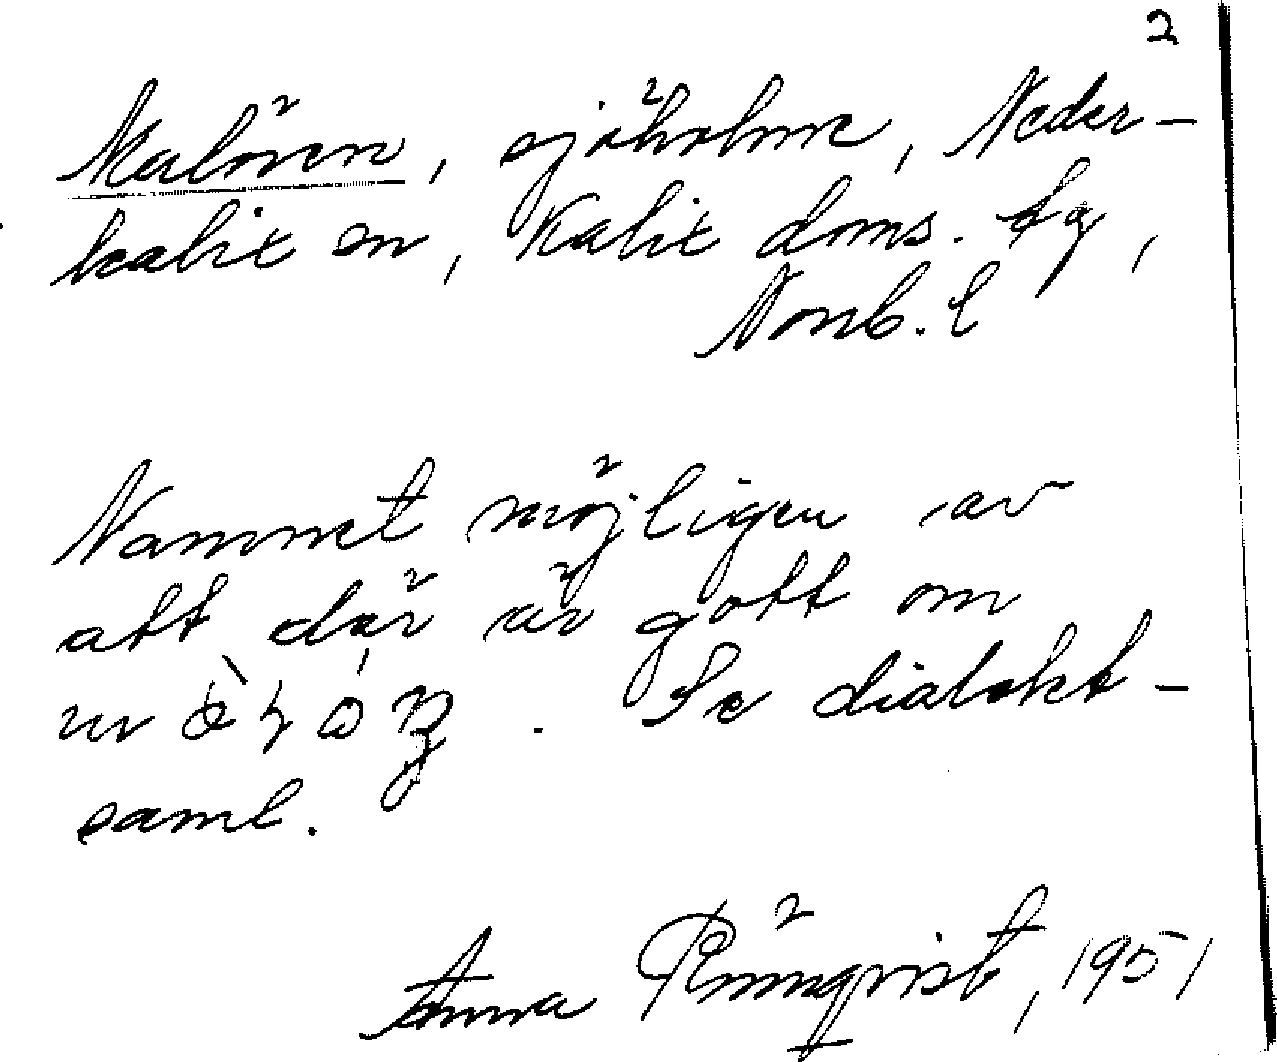 2
Malören, sjöholme, Neder-
kalix sn, Kalix doms. sg,
Norrb. l
Namnet möjligen av
att där är gott om
. Se dialekt-
saml.
Anna Rönnqvist, 1951